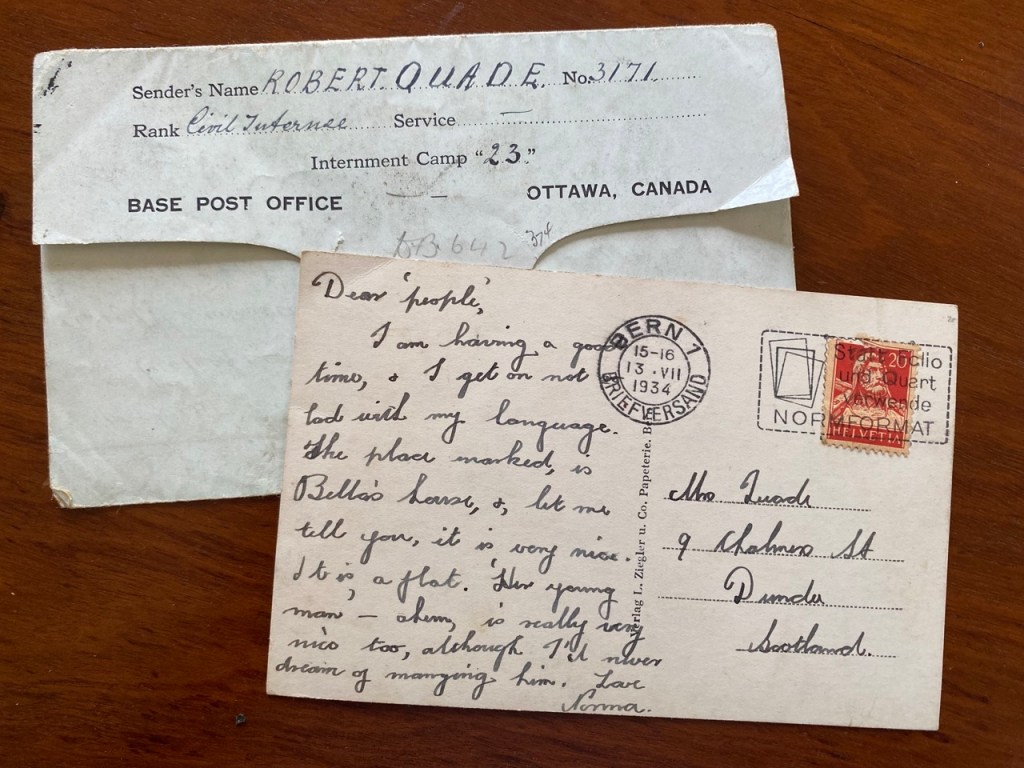 Sender's Name ROBERT QUADE. No. 3171
Rank Civil Internee Service —
Internment Camp "23"
BASE POST OFFICE OTTAWA, CANADA
DB 642
374
Dear 'people',
I am having a good
time, & I get on not
bad with my language.
The place marked, is
Bella's house, &, let me
tell you, it is very nice.
It is, a flat. Her young
man – ahem, is really very
nice too, although I'd never
dream of manging him. Love
Norma.
Verlag L. Ziegler u. Co. Papeterie.
BERN 1
15-16
13.VII
1934
BRIEFVERSAND
Statt Folio
und Quart
verwende
NORMFORMAT
20
HELVETIA
Mrs Quade
9 Chalmers St
Dundee
Scotland.